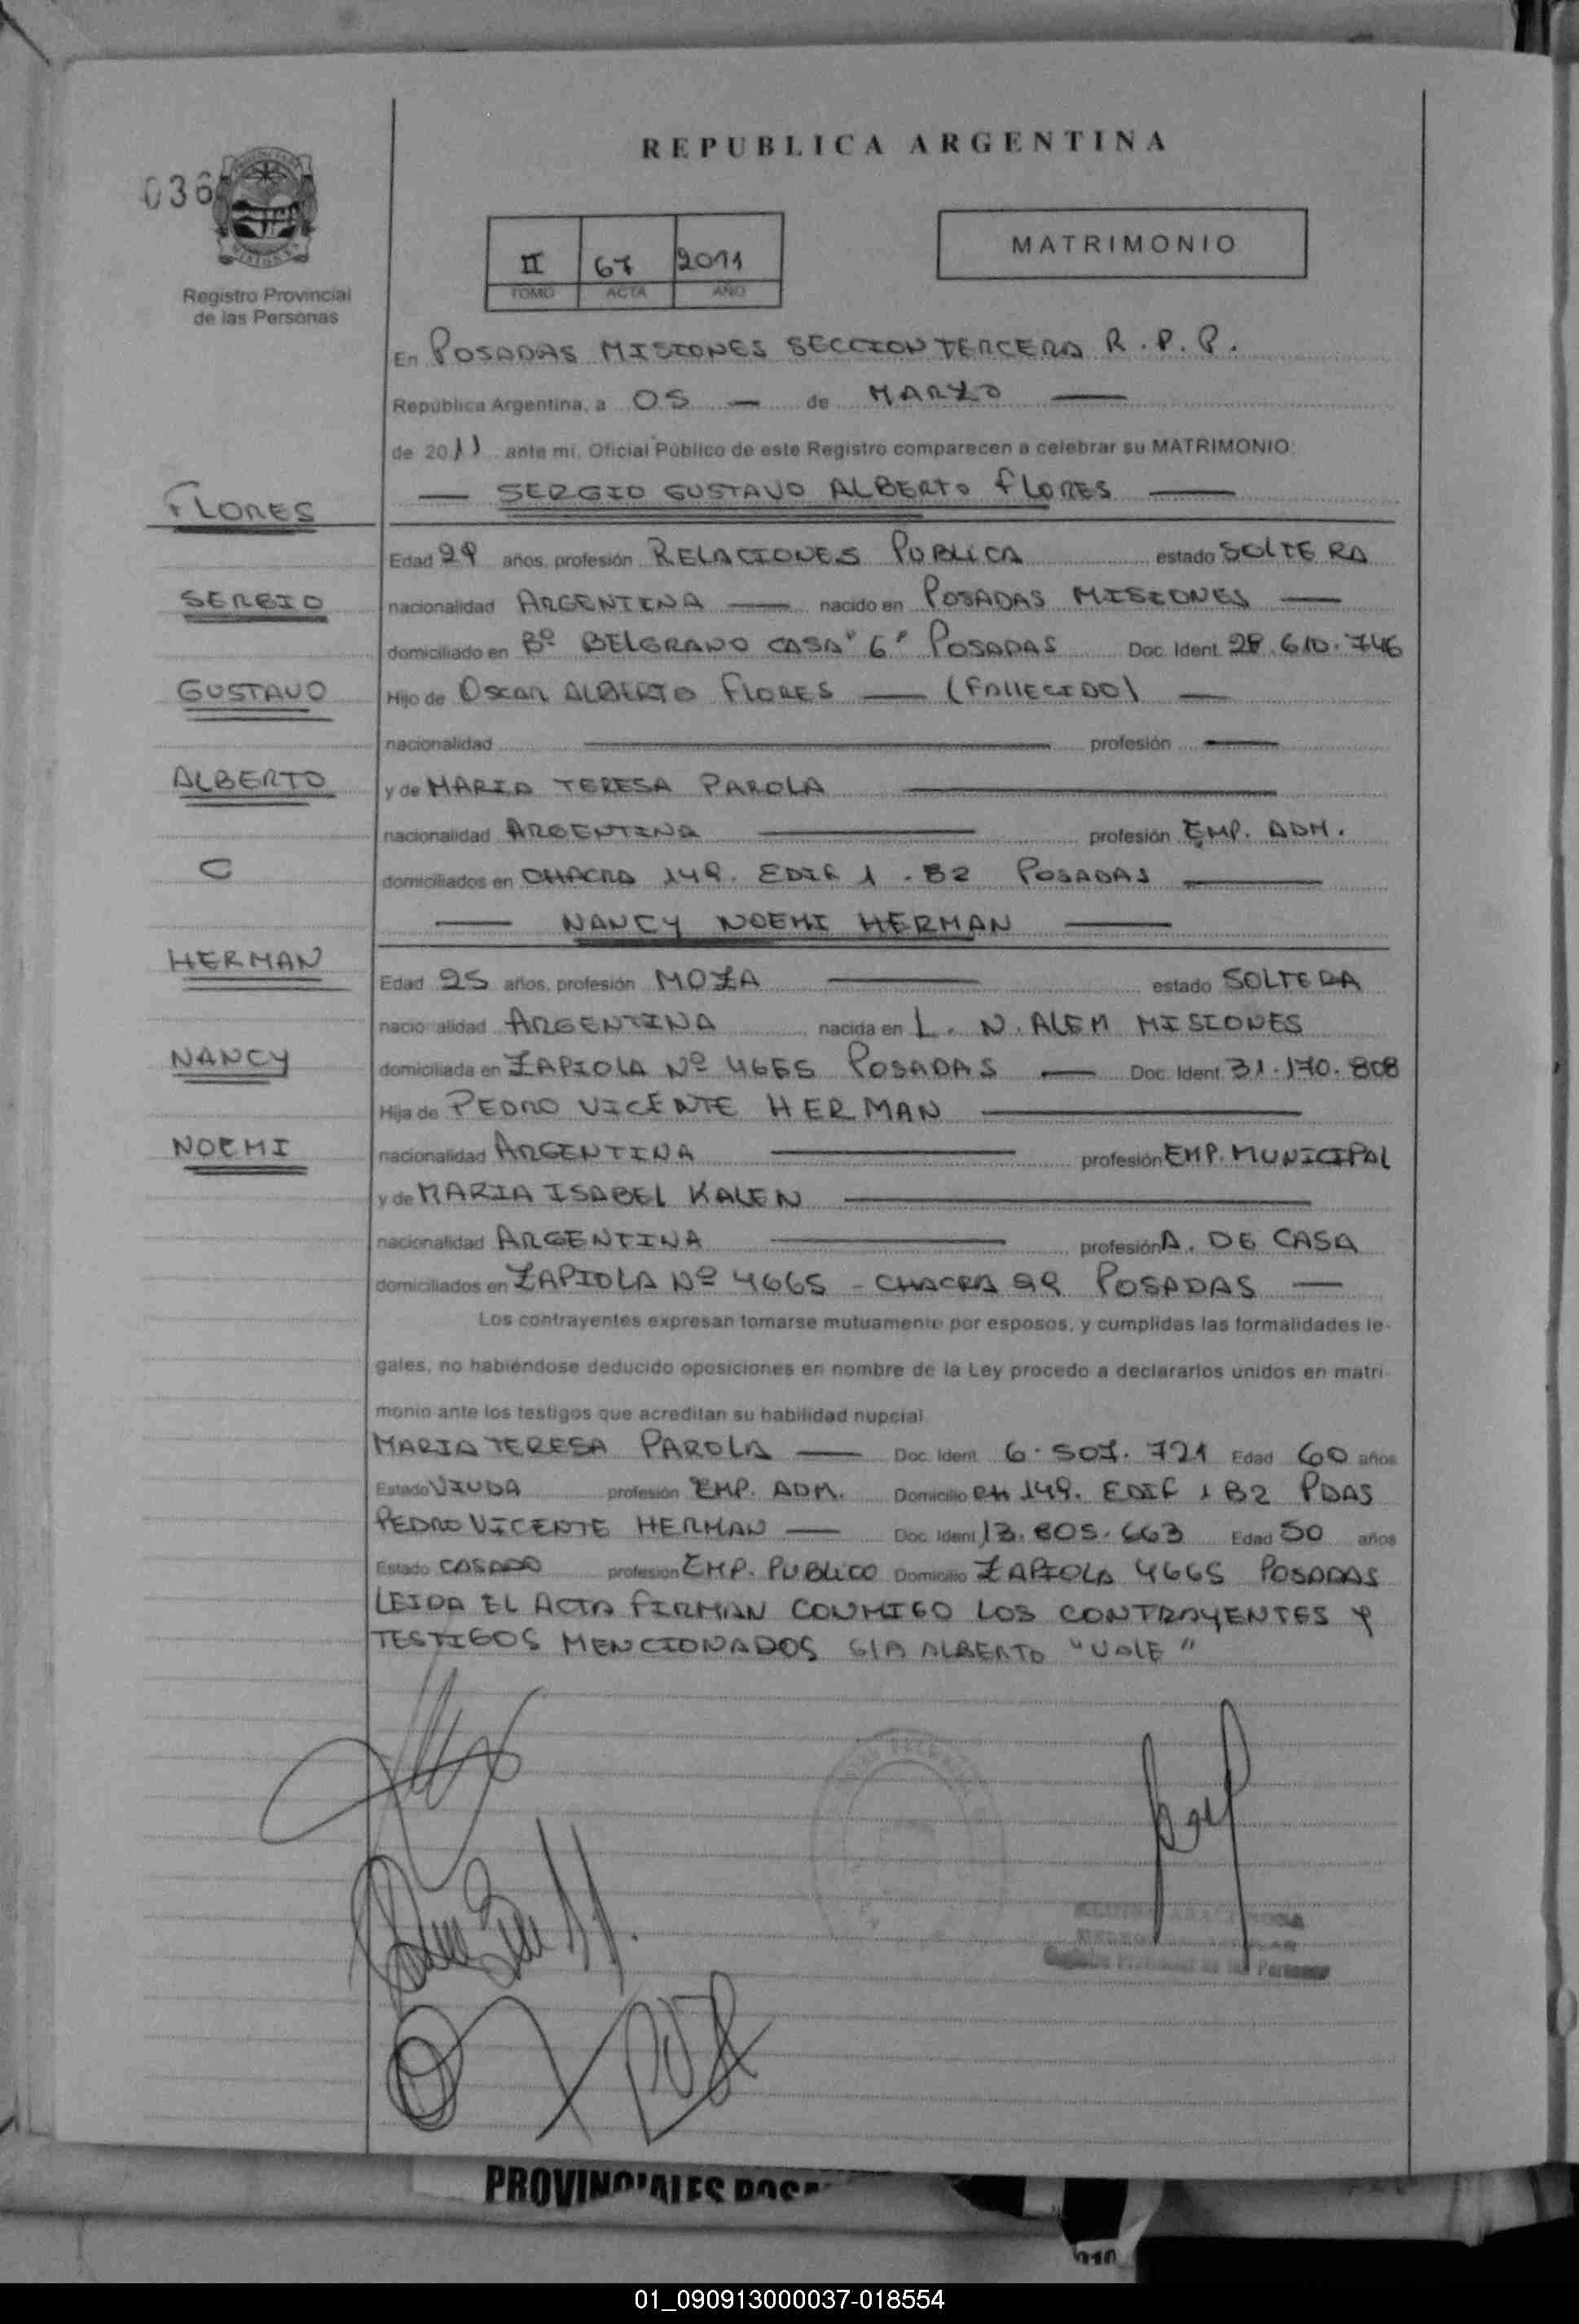 REPUBLICA ARGENTINA
036
II 67 2011
TOMO ACTA AÑO
MATRIMONIO
Registro Provincial
de las Personas
En POSADAS MISIONES SECCION TERCERA R.P.P.
República Argentina, a 05 — de MARZO —
de 2011 ante mí, Oficial Público de este Registro comparecen a celebrar su MATRIMONIO:
— SERGIO GUSTAVO ALBERTO FLORES —
FLORES
Edad 29 años, profesión RELACIONES PUBLICA estado SOLTERA
SERGIO
nacionalidad ARGENTINA — nacido en POSADAS MISIONES —
domiciliado en Bº BELGRANO CASA "6" POSADAS Doc. Ident. 28.610.746
GUSTAVO
Hijo de OSCAR ALBERTO FLORES — (FALLECIDO) —
nacionalidad — profesión —
ALBERTO
y de MARIA TERESA PAROLA —
nacionalidad ARGENTINA — profesión EMP. ADM.
C
domiciliados en CHACRA 149. EDIF 1 . B2 POSADAS —
— NANCY NOEMI HERMAN —
HERMAN
Edad 25 años, profesión MOZA — estado SOLTERA
nacionalidad ARGENTINA nacida en L. N. ALEM MISIONES
NANCY
domiciliada en ZAPIOLA Nº 4665 POSADAS — Doc. Ident. 31.170.808
Hija de PEDRO VICENTE HERMAN —
NOEMI
nacionalidad ARGENTINA — profesión EMP. MUNICIPAL
y de MARIA ISABEL KALEN —
nacionalidad ARGENTINA — profesión A. DE CASA
domiciliados en ZAPIOLA Nº 4665 - CHACRA 99 POSADAS —
Los contrayentes expresan tomarse mutuamente por esposos, y cumplidas las formalidades le-
gales, no habiéndose deducido oposiciones en nombre de la Ley procedo a declararlos unidos en matri-
monio ante los testigos que acreditan su habilidad nupcial
MARIA TERESA PAROLA — Doc. Ident. 6.507.721 Edad 60 años
Estado VIUDA profesión EMP. ADM. Domicilio CH 149. EDIF 1 B2 PDAS
PEDRO VICENTE HERMAN — Doc. Ident. 13.805.663 Edad 50 años
Estado CASADO profesión EMP. PUBLICO Domicilio ZAPIOLA 4665 POSADAS
LEIDA EL ACTA FIRMAN CONMIGO LOS CONTRAYENTES Y
TESTIGOS MENCIONADOS S/A ALBERTO "VALE"
Registro Provincial de las Personas
01_090913000037-018554